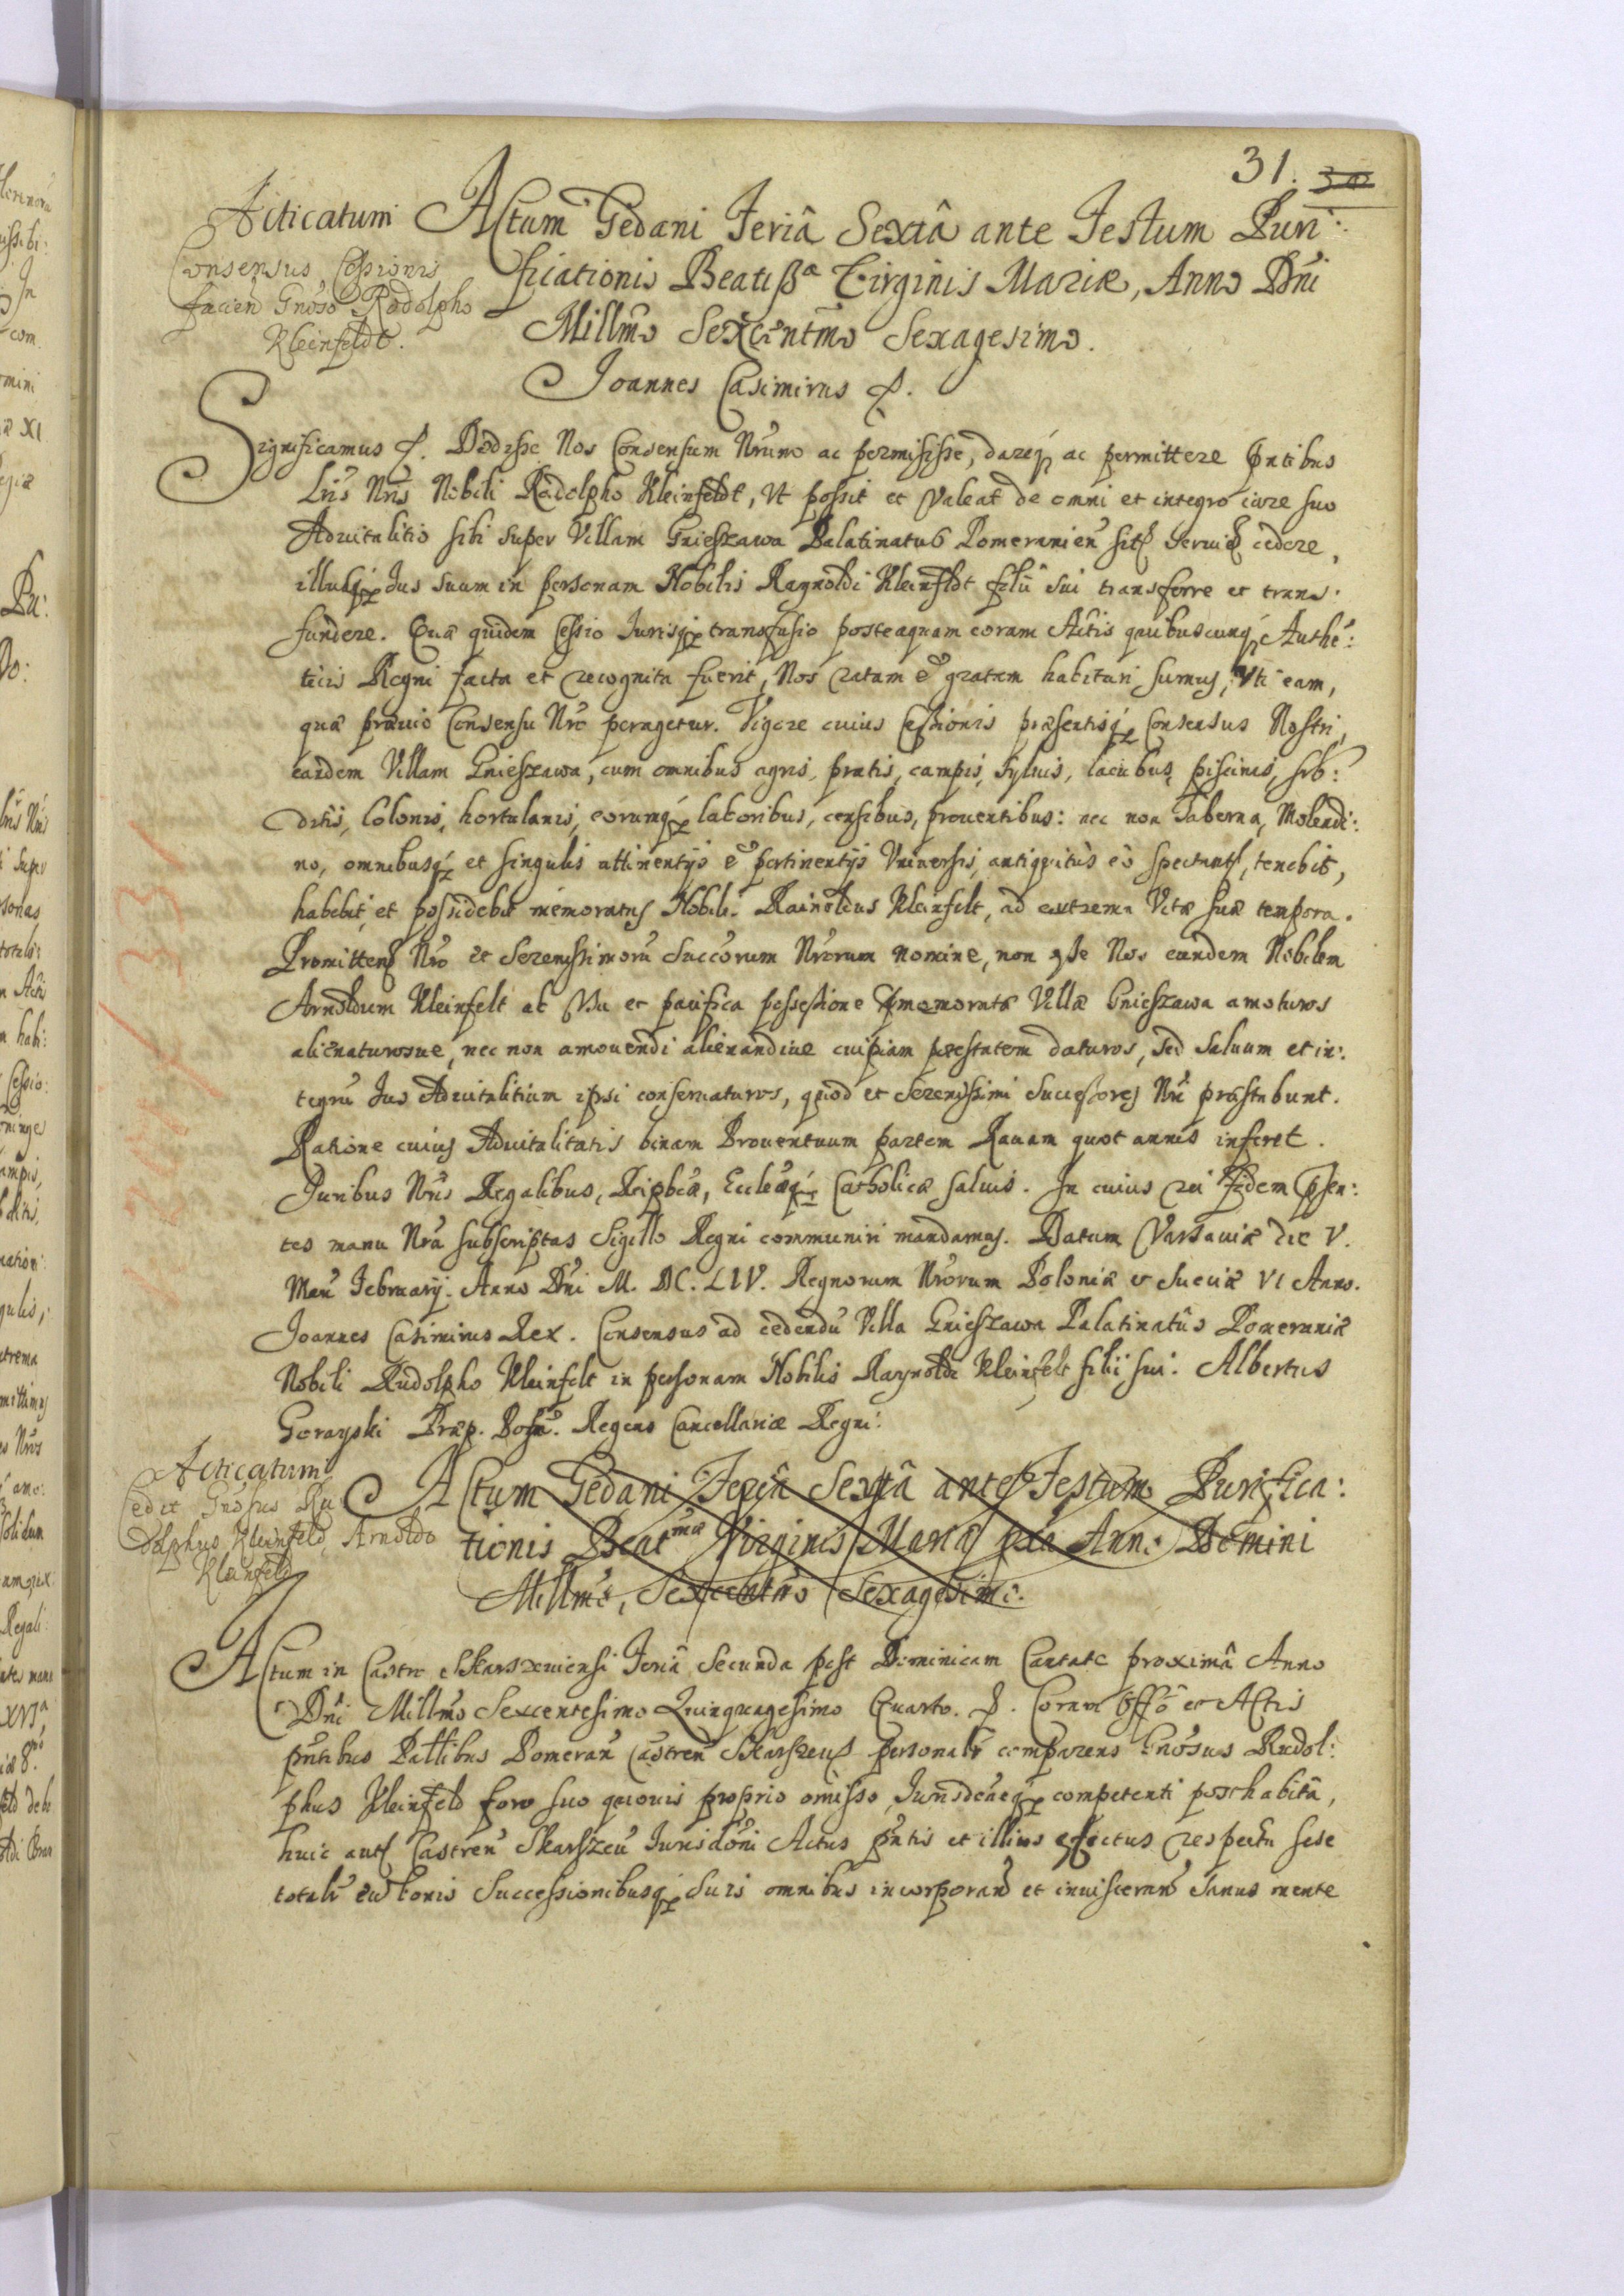 31. 30
Acticatum
Consensus Cessionis
facien Gnoso Rodolpho
Kleinfeldt.
Actum Gedani Feriâ Sextâ ante Festum Puri:
ficationis Beatissa Virginis Mariæ, Anno Dni
Millmo Sexcentmo Sexagesimo.
Joannes Casimirus &.
Significamus &. Dedisse Nos Consensum Nrum ac permisisse, dareq ac permittere pntibus
Lris Nris Nobili Rodolpho Kleinfeldt, Ut possit et Valeat de omni et integro iure suo
Advitalitio sibi super Villam Gnieszawa Palatinatus Pomeranien sit servien cedere,
illudq Jus suum in personam Nobilis Raynoldi Kleinfldt filii sui transferre et trans:
fundere. Quæ quidem Cessio Jurisq transfusio posteaquam coram Actis quibuscunq Authe:
ticis Regni facta et recognita fuerit, Nos ratam & gratam habituri sumus, Uti eam,
quæ prævio Consensu Nro peragetur. Vigore cuius Cessionis præsentisq Consensus Nostri,
eandem Villam Gnieszawa, cum omnibus agris, pratis, campis, sylvis, lacubus, piscinis, sub:
ditis, Colonis, hortulanis, eorumq laboribus, censibus, proventibus: nec non Taberna, Molendi:
no, omnibusq et singulis attinentijs & pertinentijs Universis, antiquitùs eò spectant, tenebit,
habebit, et possidebit memoratus Nobilis Rainoldus Kleinfelt, ad extrema Vitæ suæ tempora.
Promitten Nro et Serenissimorū Succorum Nrorum nomine, non esse Nos eundem Nobilem
Arnoldum Kleinfelt ab Usu et pacifica possessione memoratæ Villæ Gnieszawa amoturos
alienaturosue, nec non amovendi alienandiue cuipiam potestatem daturos, sed salvum et in:
tegrū Jus Advitalitium ipsi conservaturos, quod et Serenissimi Successores Nri præstabunt.
Ratione cuius Advitalitatis binam Proventuum partem Ravam quot annis inferet.
Juribus Nris Regalibus, Reipbcæ, Ecclæq Catholicæ salvis. In cuius rei fidem psen:
tes manu Nra subscriptas Sigillo Regni communiri mandamus. Datum Varsaviæ die V.
Men February. Anno Dni M. DC. LIV. Regnorum Nrorum Poloniæ et Sueciæ VI Anno.
Joannes Casimirus Rex. Consensus ad cedendū Villa Gnieszawa Palatinatûs Pomeraniæ
Nobili Rudolpho Kleinfelt in personam Nobilis Raynoldi Kleinfelt filii sui. Albertus
Gorayski Præp. Posn. Regens Cancellariæ Regni.
Acticatum
Cedit Gnosus Ru
dolphus Kleinfeld, Arnoldo
Kleinfeld
Actum Gedani Feriâ Sextâ ante Festum Purifica:
tionis Beatmæ Virginis Mariæ Anno Domini
Millmo, Sexcentmo Sexagesimo.
Actum in Castro Skarszeuiensi Feriâ Secunda post Dominicam Cantate proximâ Anno
Dni Millmo Sexcentesimo Quinquagesimo Quarto. &. Coram Offo et Actis
pntibus Pallibus Pomeran Castren Skarszeu personalr comparens Gnosus Rudol:
phus Kleinfeld foro suo quovis proprio omisso, Jurisdcneq competenti posthabitâ,
huic aut Castren Skarszeu Jurisdoni Actus pntis et illius effectus respectu sese
totalr cū bonis Successionibusq suis omnibus incorporan et inviscerans sanus mente